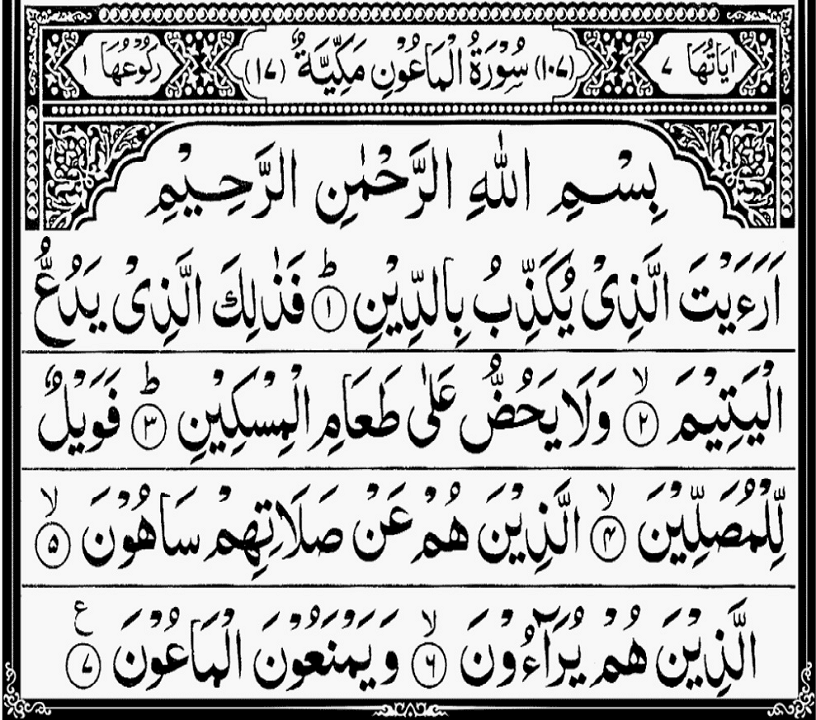 اٰیَاتُهَا ۷ (۱۰۷) سُوْرَةُ الْمَاعُوْنِ مَكِّيَّةٌ (۱۷) رُكُوْعُهَا ۱
بِسْمِ اللّٰهِ الرَّحْمٰنِ الرَّحِيْمِ
اَرَءَيْتَ الَّذِیْ يُكَذِّبُ بِالدِّيْنِ ؕ﴿۱﴾ فَذٰلِكَ الَّذِیْ يَدُعُّ
الْيَتِيْمَ ۙ﴿۲﴾ وَلَا يَحُضُّ عَلٰی طَعَامِ الْمِسْكِيْنِ ؕ﴿۳﴾ فَوَيْلٌ
لِّلْمُصَلِّيْنَ ۙ﴿۴﴾ الَّذِيْنَ هُمْ عَنْ صَلَاتِهِمْ سَاهُوْنَ ۙ﴿۵﴾
الَّذِيْنَ هُمْ يُرَآءُوْنَ ۙ﴿۶﴾ وَيَمْنَعُوْنَ الْمَاعُوْنَ ﴿۷﴾ ع